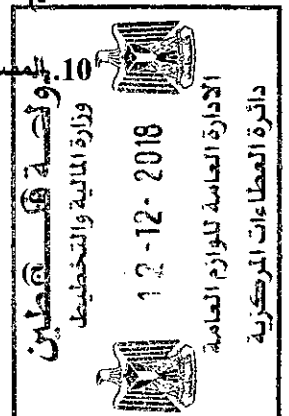 10. المس
دولة فلسطين
وزارة المالية والتخطيط
12-12-2018
الادارة العامة للوازم العامة
دائرة العطاءات المركزية